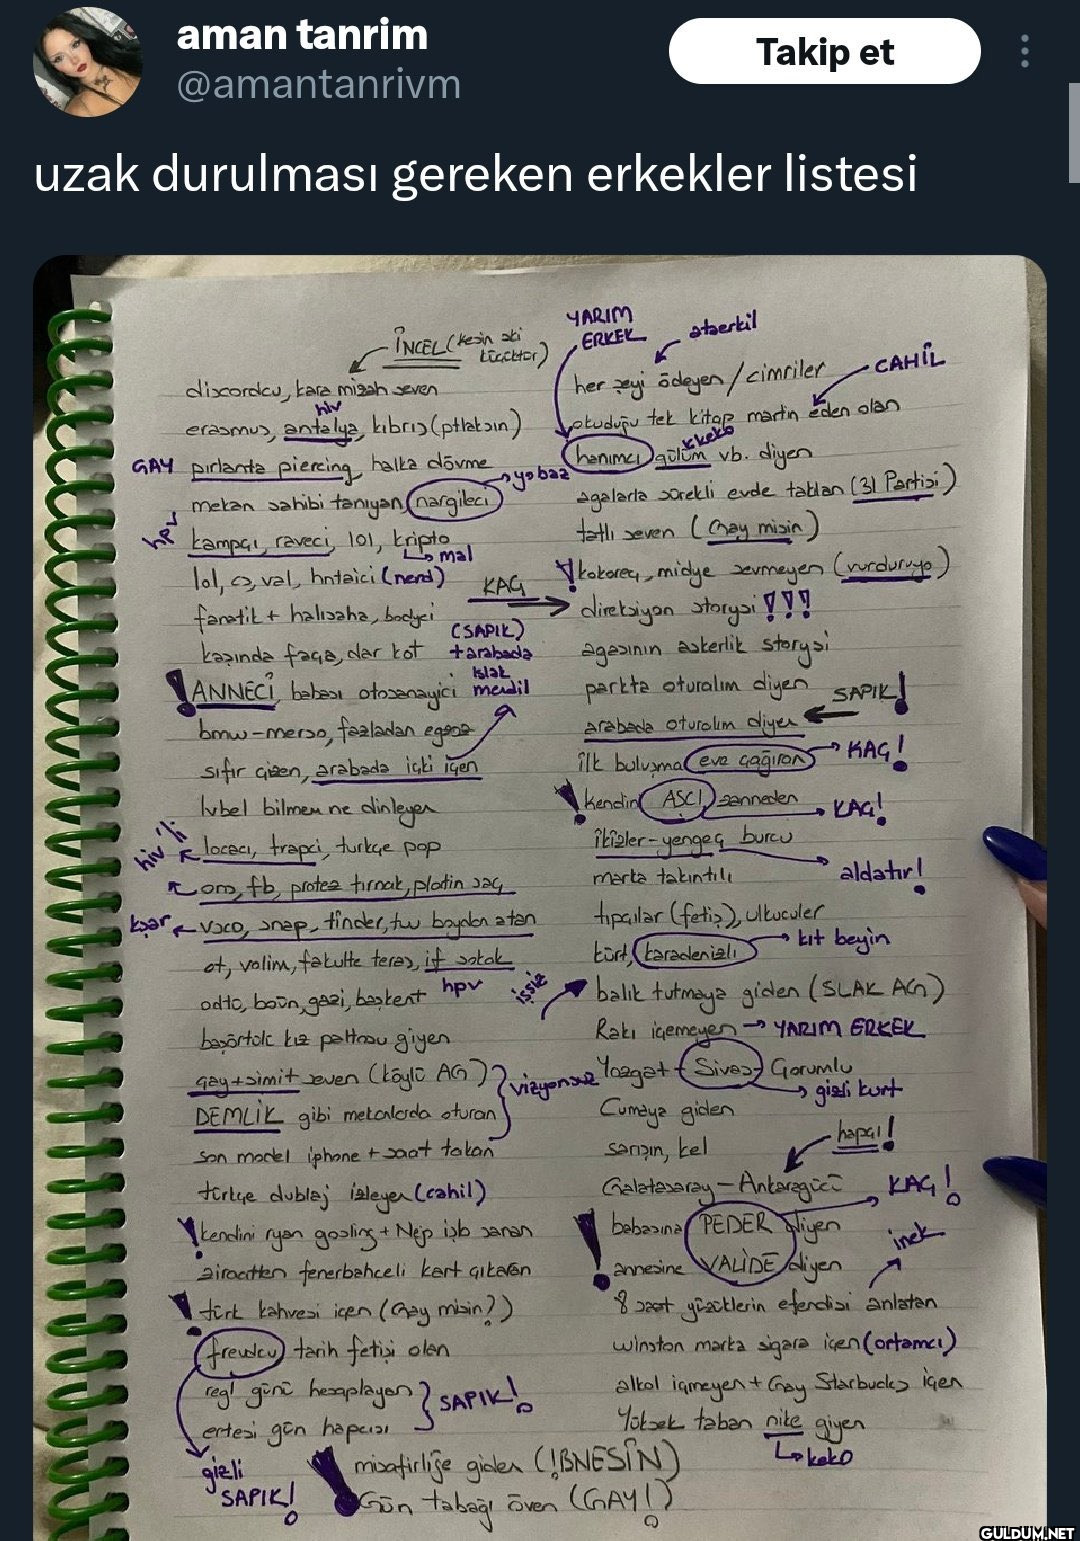 aman tanrim
@amantanrivm
Takip et
uzak durulması gereken erkekler listesi
İNCEL (kesin
discordcu, kara mizah seven
hiv
erasmus, antalya, kıbrıs (ptlaksın)
GAY pırlanta piercing, halka dövme
mekan sahibi tanıyan, nargileci yobaz
kampçı, raveci, 101, kripto
mal
lol, cs, val, hntaici (nerd)
fanatik + halısaha, bodyci
kaşında faça, dar kot
(SAPIK)
+ arabada
ıslak
mendil
! ANNECİ, babası otosanayici
bmw-merso, fazladan egzoz
sıfır çizen, arabada içki içen
lvbel bilmem ne dinleyen
hiv'li
locacı, trapci, turkçe pop
fb, protez tırnak, platin saç
kşar
vsco, snap, tinder, tw boydan atan
ot, volim, fakulte teras, if sokak
hpv
odtü, boün, gazi, başkent
başörtülü kız pattnosu giyen
çay+simit seven (köylü AG)
DEMLİK gibi mekanlarda oturan
vizyonsuz
son model iphone + saat takan
türkçe dublaj izleyen (cahil)
! kendini ryan gosling + Nejo işb sanan
ziraatten fenerbahceli kart çıkaran
! türk kahvesi içen (Gay misin?)
freudcu, tarih fetişi olan
regl günü hesaplayan
ertesi gün hapcısı
SAPIK!
gizli
SAPIK!
! misafirliğe giden (İBNESİN)
Gün tabağı öven (GAY!)
YARIM
ERKEK
ataerkil
her şeyi ödeyen / cimriler
CAHİL
okuduğu tek kitap martin eden olan
kkeko
hanımcı, gülüm vb. diyen
agalarla sürekli evde takılan (31 Partisi)
tatlı seven (Gay misin)
! kokoreç, midye sevmeyen (vurduruyo)
KAÇ
direksiyon storysi !!!
agasının askerlik storysi
parkta oturalım diyen
SAPIK!
arabada oturalım diyen
ilk buluşma eve çağıran KAÇ!
! kendin AŞÇI zanneden KAÇ!
ikizler-yengeç burcu
aldatır!
marka takıntılı
tıpçılar (fetiş), ulkuculer
kürt, karadenizli kıt beyin
işsiz
balık tutmaya giden (SLAK AG)
Rakı içemeyen YARIM ERKEK
Yozgat + Sivas + Çorumlu
gizli kurt
Cumaya giden
sarışın, kel
hapçı!
Galatasaray - Ankaragücü
KAÇ!
! babasına PEDER diyen
annesine VALİDE diyen
inek
8 saat yüzüklerin efendisi anlatan
winston marka sigara içen (ortamcı)
alkol içmeyen + Gay Starbucks içen
Yüksek taban nike giyen
keko
GULDUM.NET